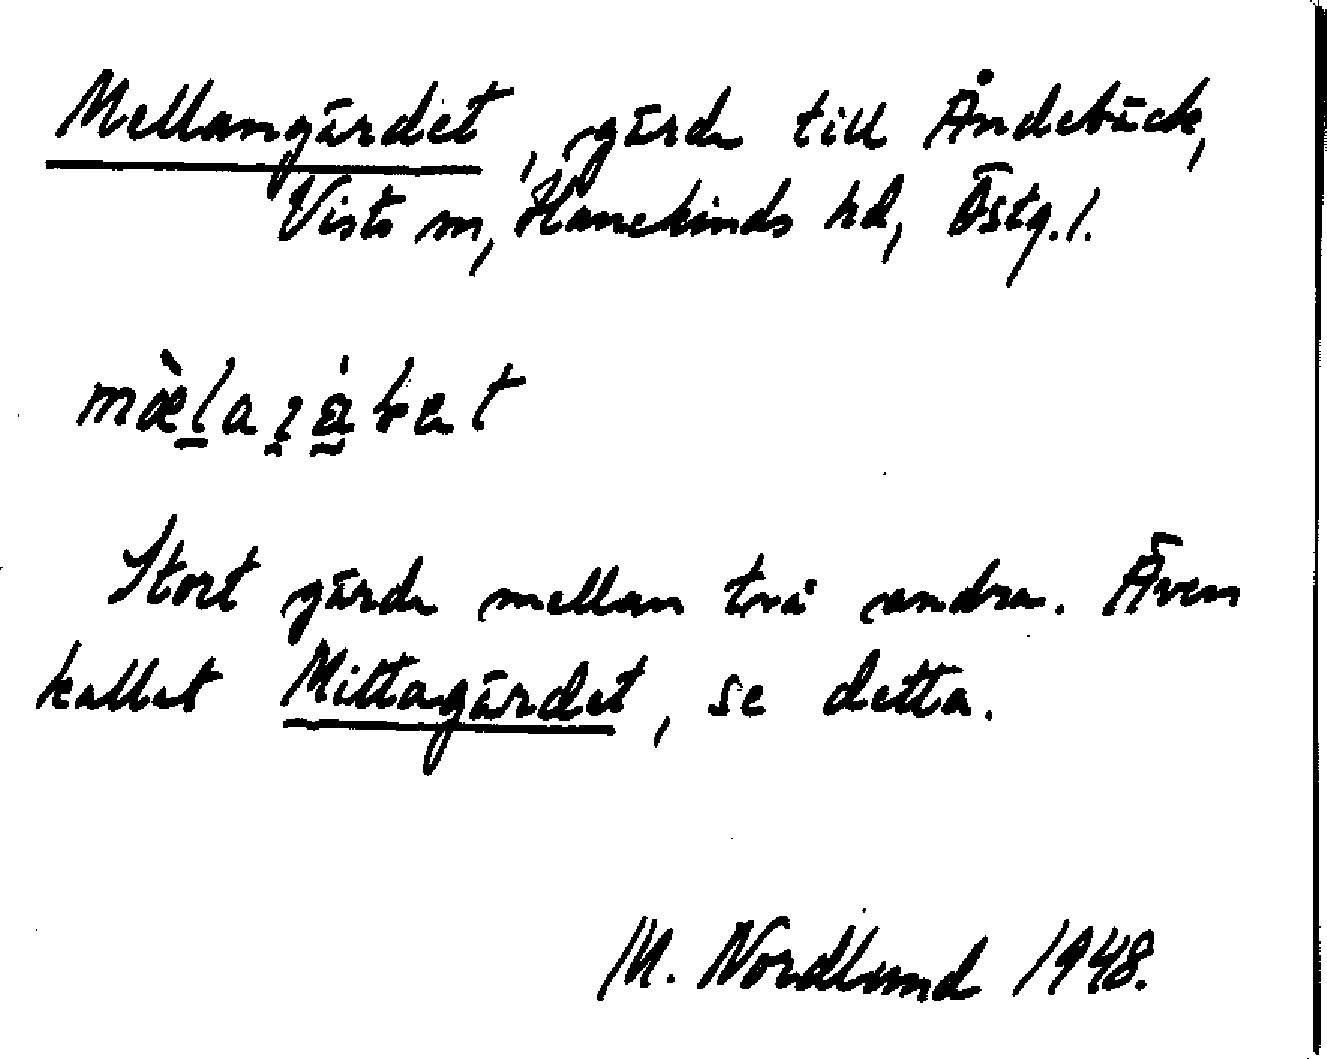 Mellangärdet, gärde till Åndebäck,
Vists sn, Hanekinds hd, Östg. l.
Stort gärde mellan två andra. Även
kallat Mittagärdet, se detta.
M. Nordlund 1948.